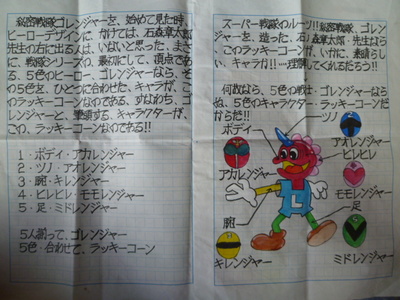 秘密戦隊ゴレンジャーを、始めて見た時、
ヒーローデザインに、かけては、石森章太郎
先生の右に出る人は、いないと思った、まさ
に、戦隊シリーズの、最初にして、頂点であ
る、5色のヒーロー、ゴレンジャーなら、そ
の5色を、ひとつに合わせた、キャラが、こ
のラッキーコーンなのである、すなわち、ゴ
レンジャーと、筆頭する、キャラクターが、こ
の、ラッキーコーンなのである!!
1・ボディ・アカレンジャー
2・ツノ・アオレンジャー
3・腕・キレンジャー
4・ヒレヒレ・モモレンジャー
5・足・ミドレンジャー
5人揃って、ゴレンジャー
5色・合わせて、ラッキーコーン
スーパー戦隊のルーツ!!秘密戦隊、ゴレン
ジャーを、造った、石森・章太郎・先生なら
、このラッキーコーンが、いかに、素晴らし
い、キャラが!!…理解してくれるだろう!!
何故なら、5色の戦士・ゴレンジャーなら
ぬ、5色のキャラクター・ラッキーコーンだ
からだ!!
ボディ
ツノ
アカレンジャー
アオレンジャー
ヒレヒレ
モモレンジャー
L
足
腕
キレンジャー
ミドレンジャー